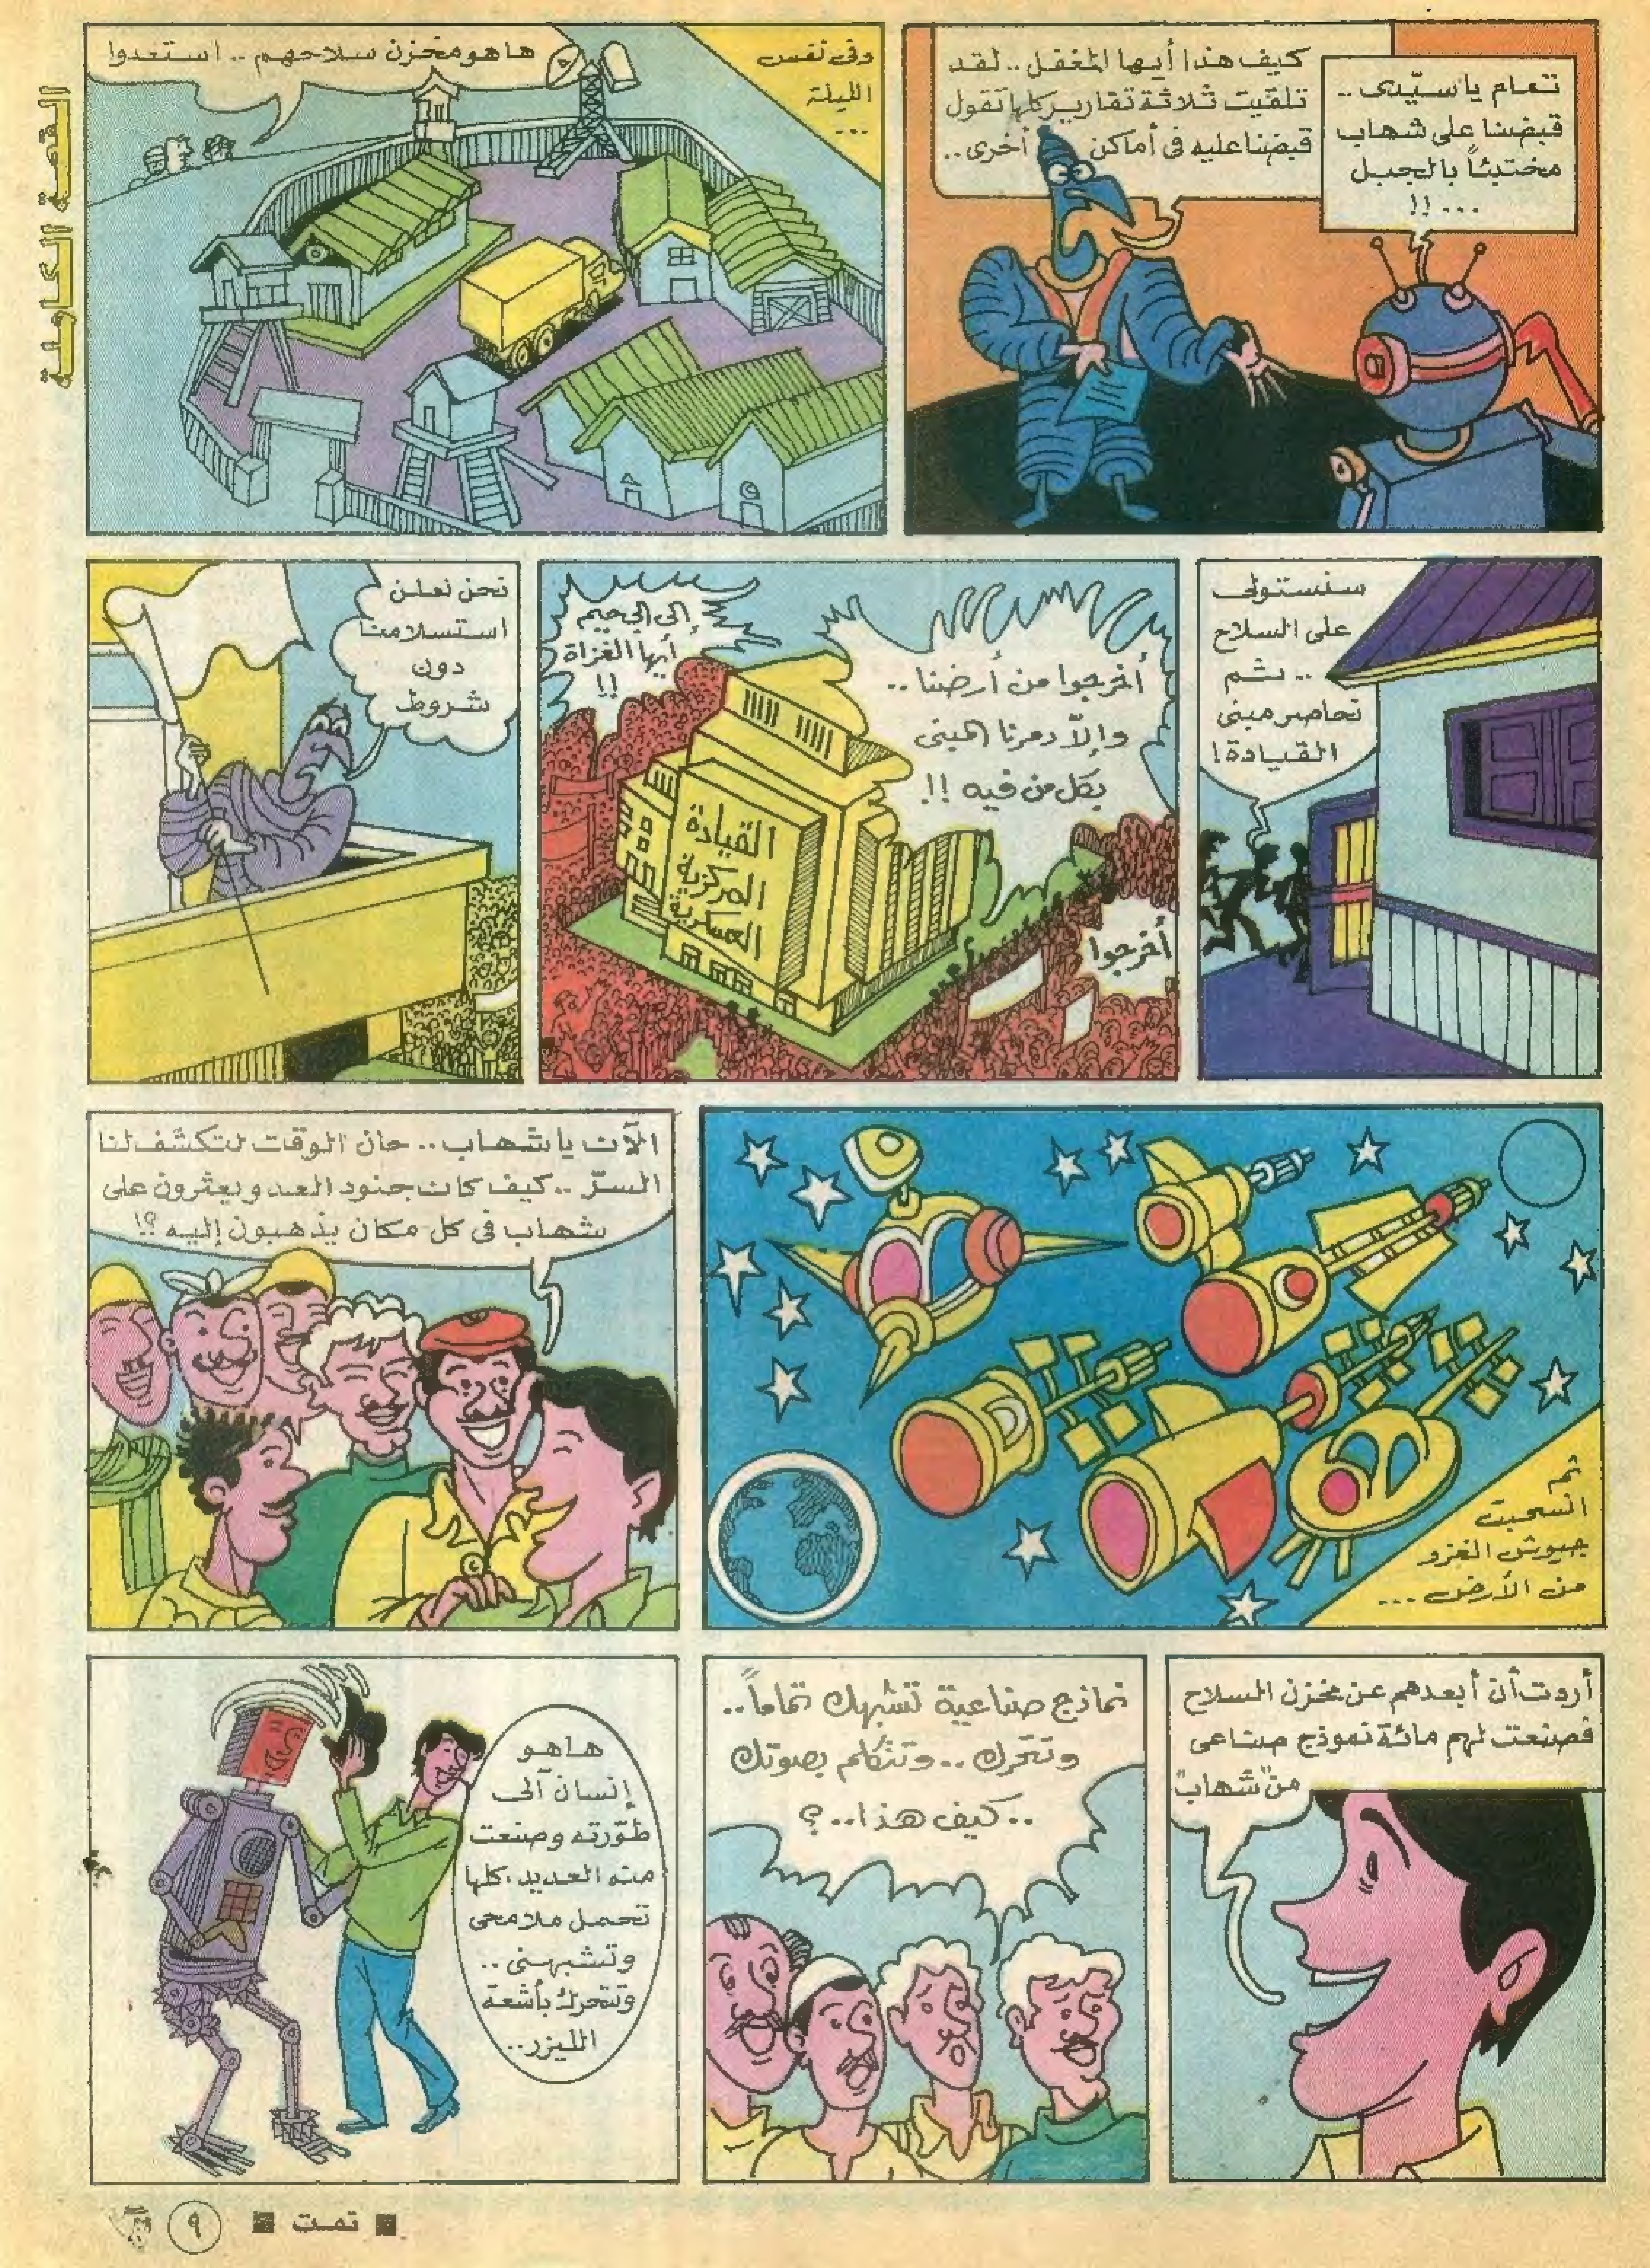 القصة الكاملة
تمام يا سيّدى ..
قبضنا على شهاب
مختبئاً بالجبل
... !!
كيف هذا أيها المغفل .. لقد
تلقيت ثلاثة تقارير كلها تقول
قبضنا عليه فى أماكن أخرى ..
وفى نفس
الليلة
...
ها هو مخزن سلاحهم .. استعدوا
سنستولى
على السلاح
.. ثم
نحاصر مبنى
القيادة !
أخرجوا من أرضنا ..
وإلاّ دمرنا المبنى
بكل من فيه !!
إلى الجحيم
أيها الغزاة
!!
القيادة
المركزية
العسكرية
أخرجوا
نحن نعلن
استسلامنا
دون
شروط
ثم
انسحبت
جيوش الغزو
من الأرض ...
الآن يا شهاب .. حان الوقت لتكشف لنا
السرّ .. كيف كان جنود العدو يعثرون على
شهاب فى كل مكان يذهبون إليه ؟!
أردت أن أبعدهم عن مخزن السلاح
فصنعت لهم مائة نموذج صناعى
من "شهاب"
نماذج صناعية تشبهك تماماً ..
وتتحرك .. وتتكلم بصوتك
.. كيف هذا .. ؟
ها هو
إنسان آلى
طوّرته وصنعت
منه العديد . كلها
تحمل ملامحى
وتشبهنى ..
وتتحرك بأشعة
الليزر ..
تمت
٩